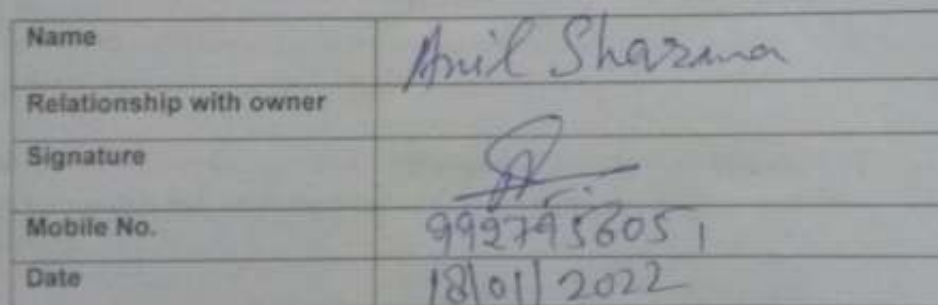 Name Anil Sharma
Relationship with owner
Signature
Mobile No. 9927956051
Date 18/01/2022